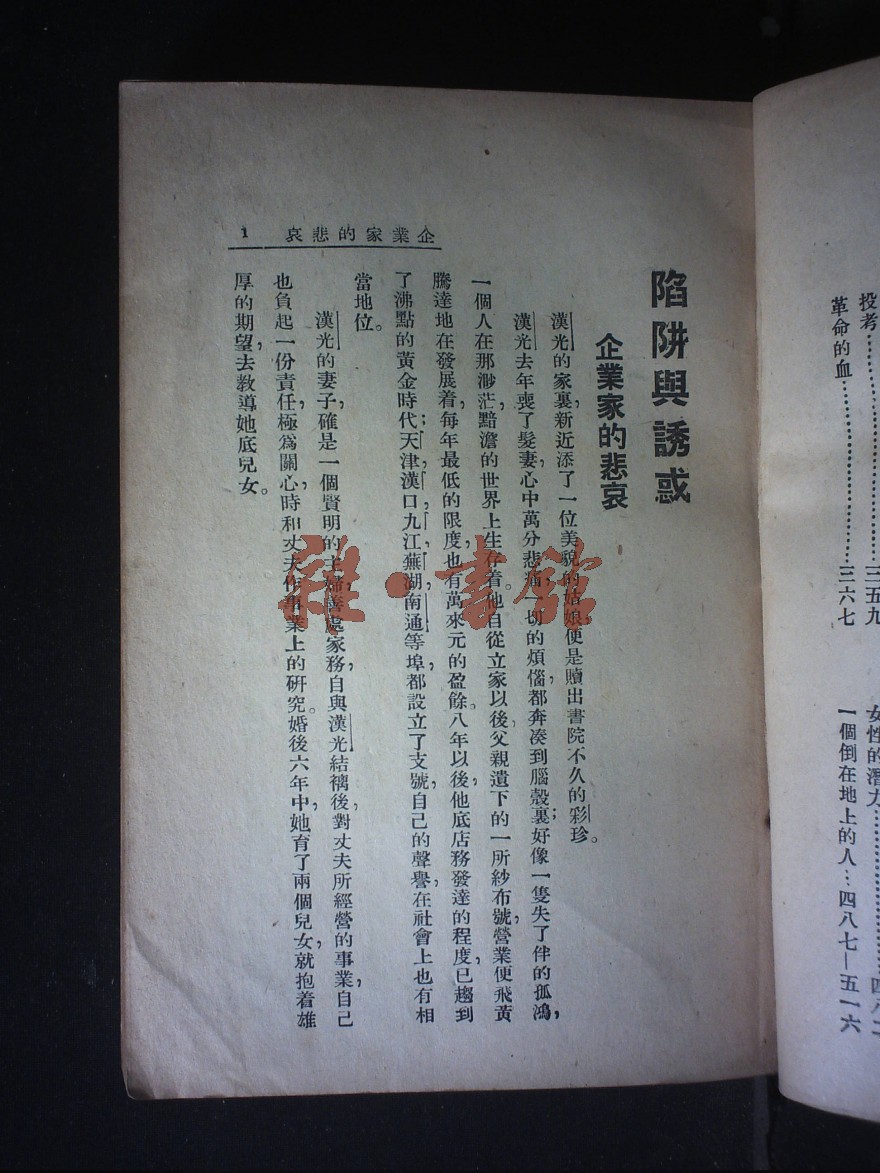 投考……三五九
革命的血……三六七
女性的潛力
一個倒在地上的人…四八七—五一六
企業家的悲哀 1
陷阱與誘惑
企業家的悲哀
漢光的家裏，新近添了一位美貌的姑娘，便是贖出書院不久的彩珍。
漢光去年喪了髮妻，心中萬分悲痛，一切的煩惱都奔湊到腦殼裏；好像一隻失了伴的孤鴻，
一個人在那渺茫，黯澹的世界上生存着。他自從立家以後，父親遺下的一所紗布號，營業便飛黃
騰達地在發展着，每年最低的限度，也有萬來元的盈餘。八年以後，他底店務發達的程度，已趨到
了沸點的黃金時代；天津，漢口，九江，蕪湖，南通等埠，都設立了支號，自己的聲譽，在社會上也有相
當地位。
漢光的妻子，確是一個賢明的主婦，善處家務，自與漢光結褵後，對丈夫所經營的事業，自己
也負起一份責任，極爲關心，時和丈夫作事業上的硏究。婚後六年中，她育了兩個兒女，就抱着雄
厚的期望，去教導她底兒女。
雜·書館